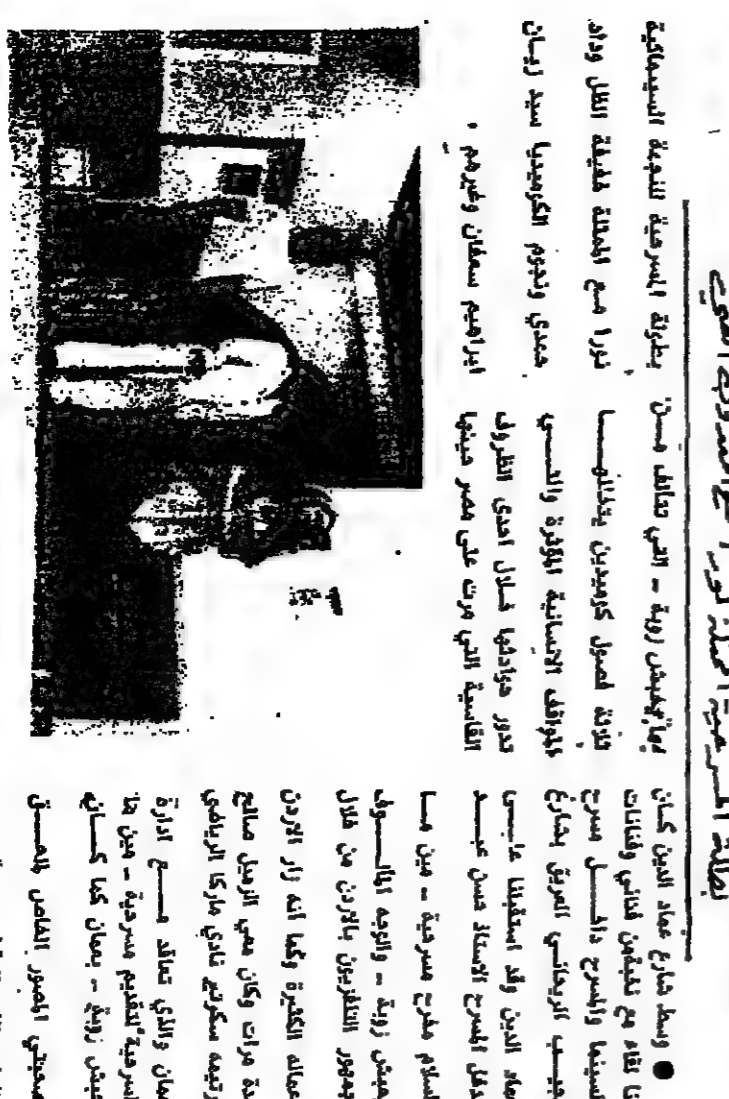 بطلة المسرحية الممثلة نورا مع
● وسط شارع عماد الدين كان
نا لقاء مع نخبة من فناني وفنانات
لسينما والمسرح داخـــل مسرح
جيـب الريحاني العريق بشارع
ماد الدين وقد استقبلنا علـــى
دخل المسرح الاستاذ حسن عبــد
لسلام مخرج مسرحية ـ مين مــا
حبش زوبة ـ والوجه المألـــوف
جمهور التلفزيون بالاردن من خلال
عماله الكثيرة وكما انه زار الاردن
دة مرات وكان معي الزميل صالح
رتيمه سكرتير نادي ماركا الرياضي
مان والذي تعاقد مـــع ادارة
سرحية لتقديم مسرحية ـ مين ما
حبش زوبة ـ بعمان كما كـــان
صحبتي المصور الخاص للملحـــق
بهايحبش زوبة ـ التي تتألف مــن
ثلاثة فصول كوميدين يتخللهــــا
المواقف الانسانية المؤثرة والتـــي
تدور حوادثها خـلال احدى الظروف
القاسية التي مرت على مصر حينها
بطولة المسرحية للنجمة السينمائية
نورا مـع الممثلة خفيفة الظل وداد
حمدي ونجوم الكوميديا سيد زيـان
ابراهيم سعفان وغيرهم .